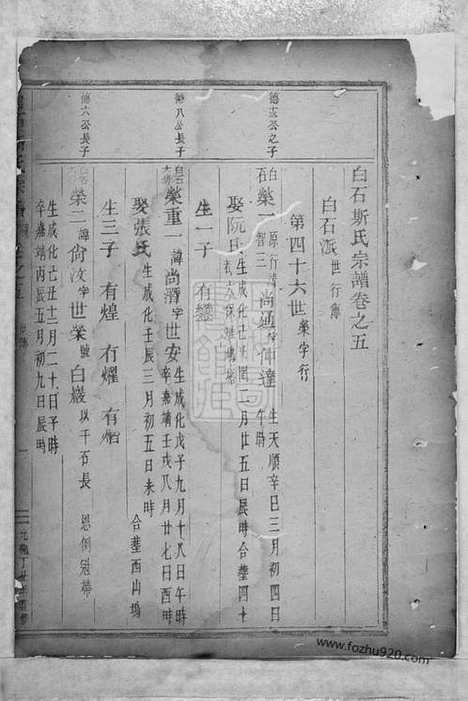 白石斯氏宗譜卷之五
白石派世行傳
第四十六世榮字行
德公之子
白石榮一原行智三諱尚通字仲達生天順辛巳三月初四日午時
娶阮氏生成化二月廿五日辰時合葬四十
生一子有
德八公長子
榮重一諱尚潛字世安生成化戊子九月十八日午時卒嘉靖壬戌八月廿七日酉時
娶張氏生成化壬辰三月初五日未時合葬西山塢
生三子有煌有燿有焰
德六公長子
榮二諱尚汶字世業號白巖以千石長恩例冠帶
生成化丑十二月二十日子時卒嘉靖丙辰五月初九日辰時
www.fozhu920.com